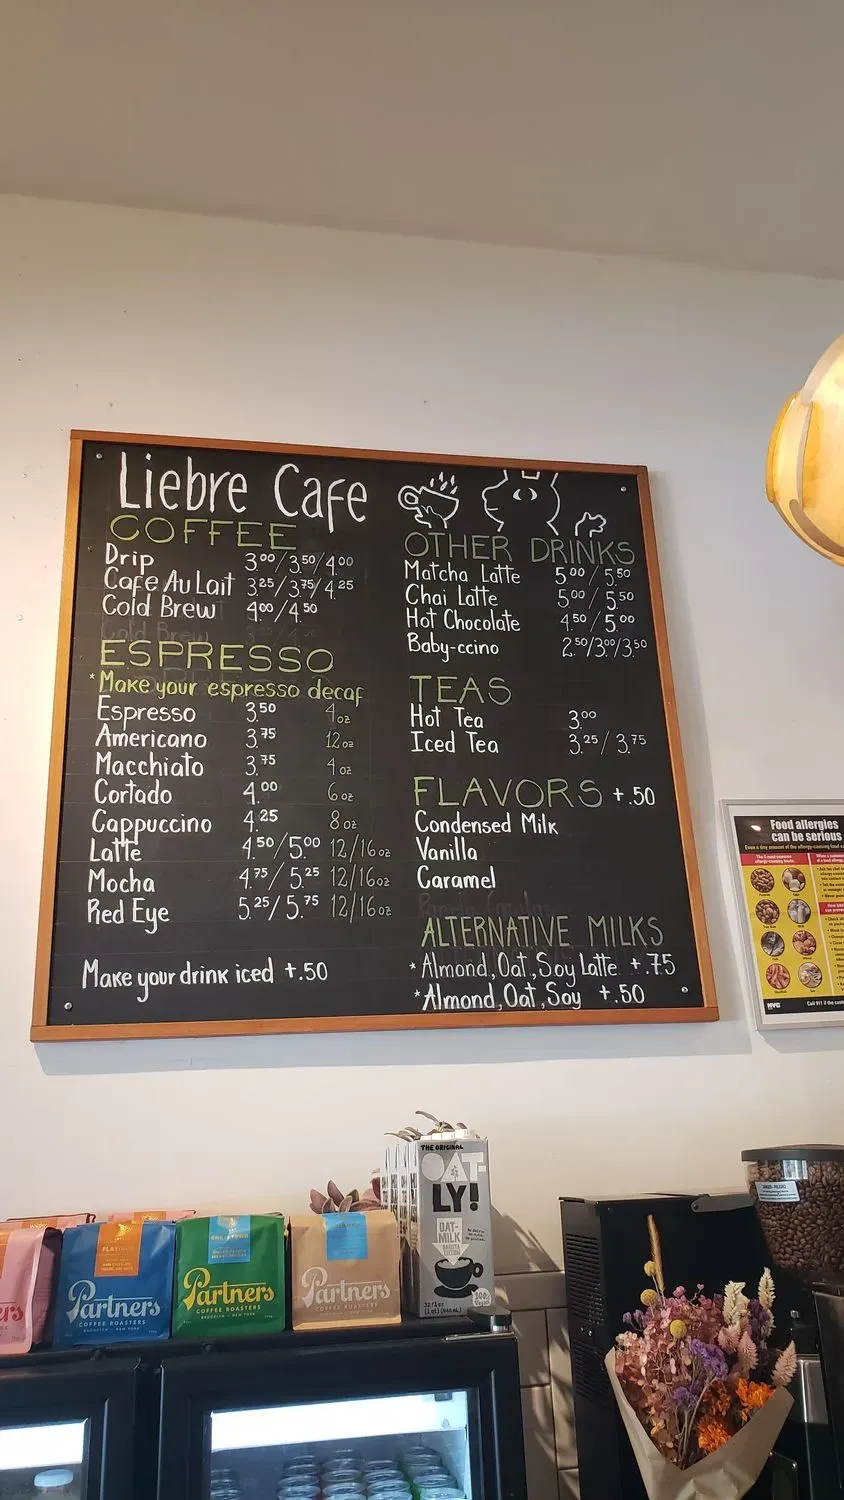 Liebre Cafe
COFFEE
Drip 3.00/3.50/4.00
Cafe Au Lait 3.25/3.75/4.25
Cold Brew 4.00/4.50
ESPRESSO
*Make your espresso decaf
Espresso 3.50 4oz
Americano 3.75 12oz
Macchiato 3.75 4oz
Cortado 4.00 6oz
Cappuccino 4.25 8oz
Latte 4.50/5.00 12/16oz
Mocha 4.75/5.25 12/16oz
Red Eye 5.25/5.75 12/16oz
Make your drink iced +.50
OTHER DRINKS
Matcha Latte 5.00/5.50
Chai Latte 5.00/5.50
Hot Chocolate 4.50/5.00
Baby-ccino 2.50/3.00/3.50
TEAS
Hot Tea 3.00
Iced Tea 3.25/3.75
FLAVORS +.50
Condensed Milk
Vanilla
Caramel
ALTERNATIVE MILKS
*Almond, Oat, Soy Latte +.75
*Almond, Oat, Soy +.50
Food allergies
can be serious
NYC
THE ORIGINAL
OAT-
LY!
OAT-
MILK
BARISTA
EDITION
Partners
COFFEE ROASTERS
BROOKLYN · NEW YORK
Partners
COFFEE ROASTERS
BROOKLYN · NEW YORK
Partners
COFFEE ROASTERS
BROOKLYN · NEW YORK